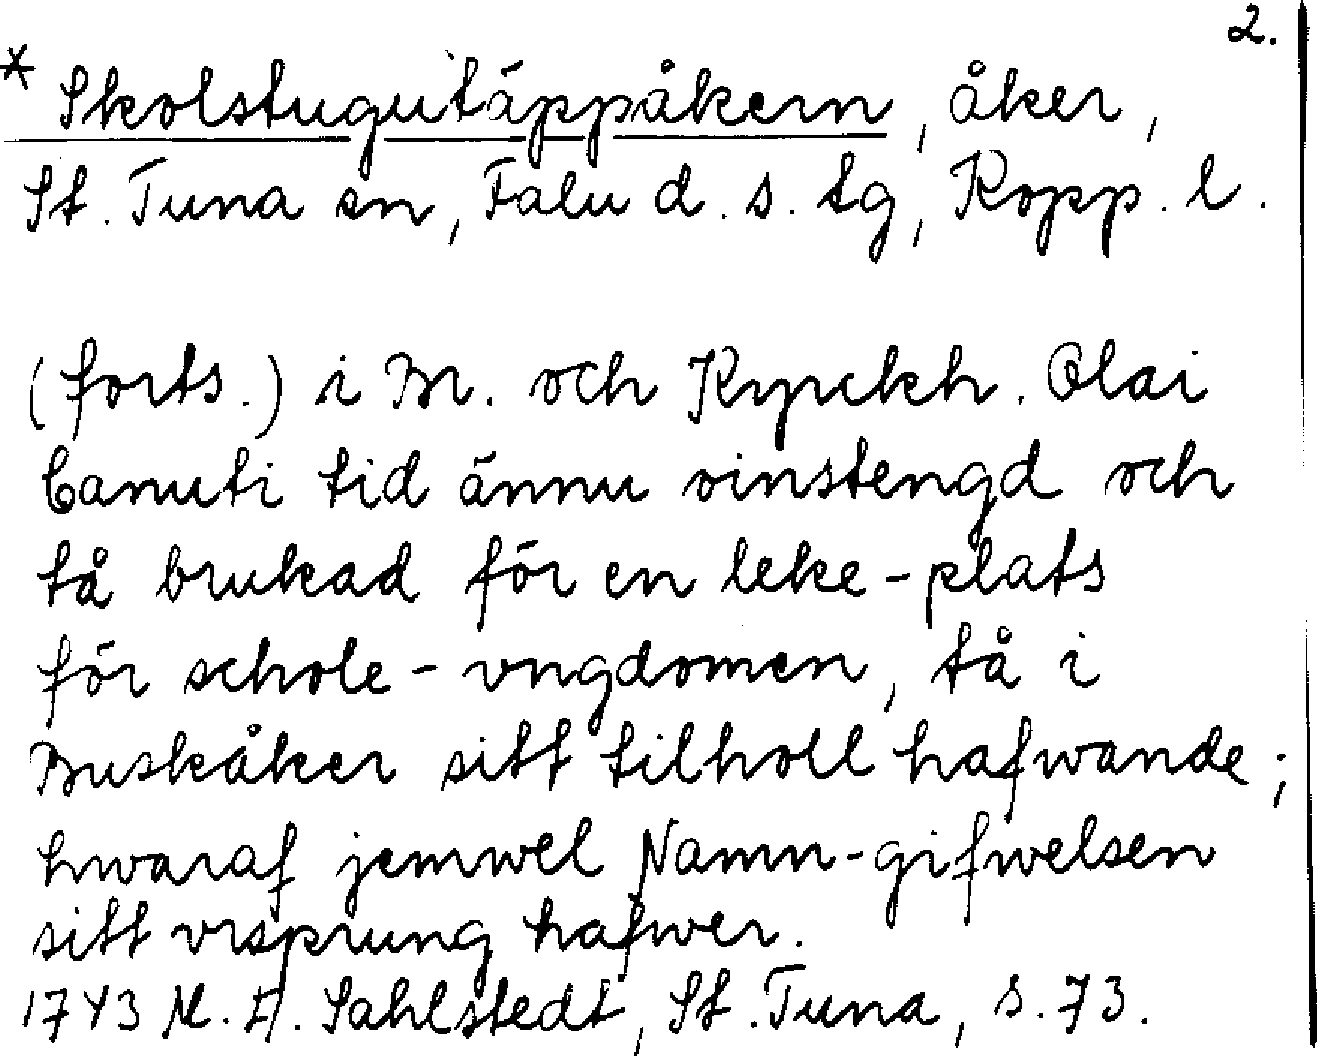 2.
* Skolstugutäppåkern, åker,
St. Tuna sn, Falu d. s. tg, Kopp. l.
(forts.) i M. och Kyrckh. Olai
Canuti tid ännu oinstengd och
tå brukad för en leke-plats
för schole-vngdomen, tå i
Buskåker sitt tilholl hafwande;
hwaraf jemwel Namn-gifwelsen
sitt vrsprung hafwer.
1743 M. A. Sahlstedt, St. Tuna, s. 73.